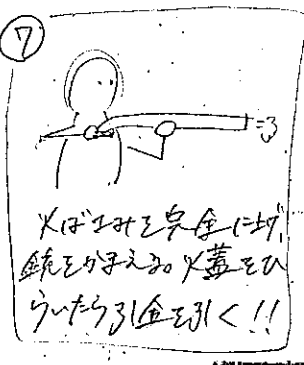 ⑦
火ばさみを完全に上げ、
銃をかまえる。火蓋をひ
らいたら引金を引く!!